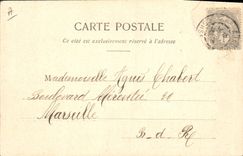 A
CARTE POSTALE
Ce côté est exclusivement réservé à l'adresse
Mademoiselle Agnès Chabert
Boulevard 20
Marseille
B. d. R